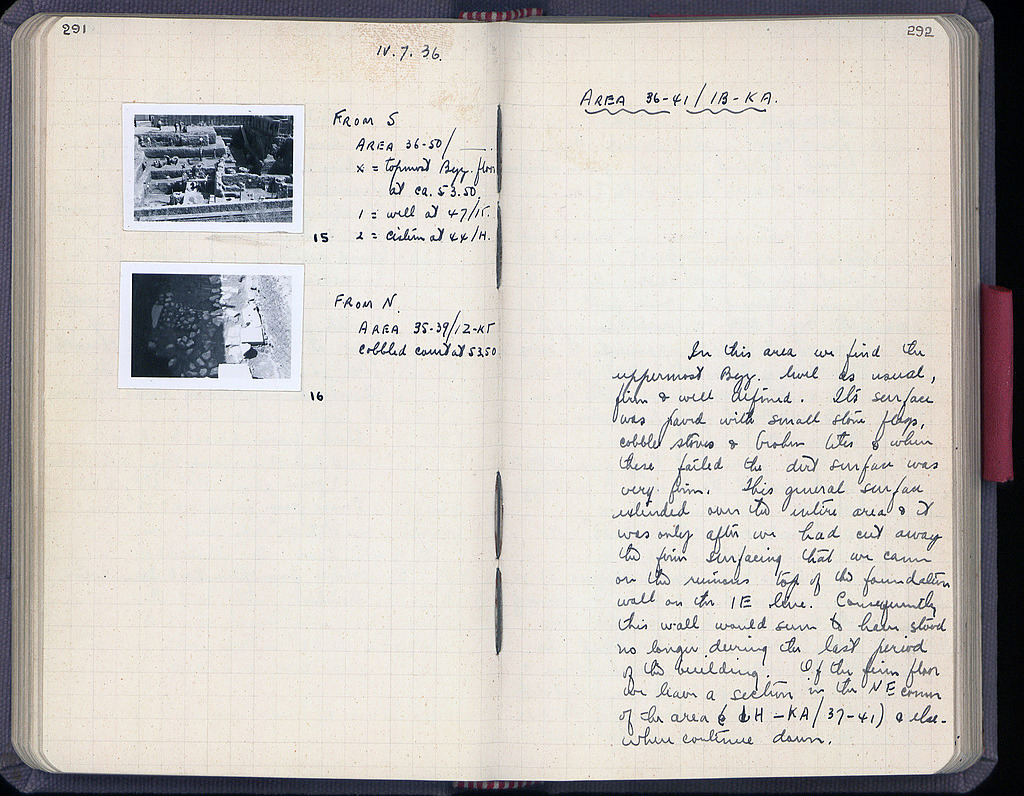 291
IV.7.36.
FROM S
AREA 36-50/
x = topmost Byz. floor
at ca. 53.50
1 = well at 47/IE.
2 = cistern at 44/H.
15
FROM N.
AREA 35-39/
cobbled court at 53.50
16
292
AREA 36-41/IB-KA.
In this area we find the
uppermost Byz. level as usual,
firm & well defined. Its surface
was paved with small stone flags,
cobble stones & broken tiles & when
these failed the dirt surface was
very firm. This general surface
extended over the entire area & it
was only after we had cut away
the firm surfacing that we came
on the ruinous top of the foundation
wall on the IE line. Consequently
this wall would seem to have stood
no longer during the last period
of the building. Of the firm floor
we leave a section in the NE corner
of the area ( H-KA/37-41) & else-
where continue down.